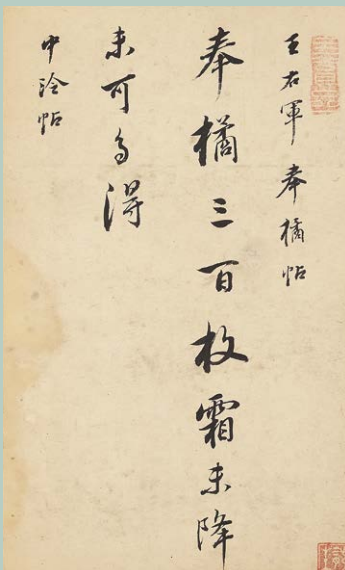 王右軍奉橘帖
奉橘三百枚霜未降
未可多得
中冷帖